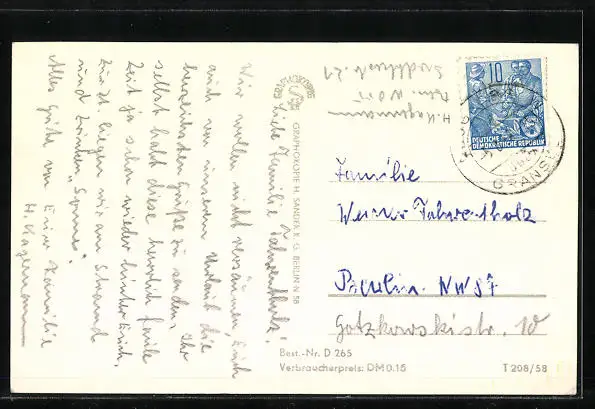 Liebe Familie Fahrentholz!
Wir wollen nicht versäumen, Euch
auch von unserem Urlaub die
herzlichsten Grüße zu senden. Ihr
selbst habt diese herrlich faule
Zeit ja schon wieder hinter Euch.
Zurzt. liegen wir am Strand
und trinken „Sonne".
Alles Gute von Eurer Familie
H. Hagemann
GRAPHOKOPIE H. SANDER K.G. BERLIN N 58
H. Hagemann
10
DEUTSCHE
DEMOKRATISCHE REPUBLIK
GRANSEE
Familie
Werner Fahrentholz
Berlin NW87
Gotzkowskistr. 10
Best.-Nr. D 265
Verbraucherpreis: DM 0.15
T 208/58